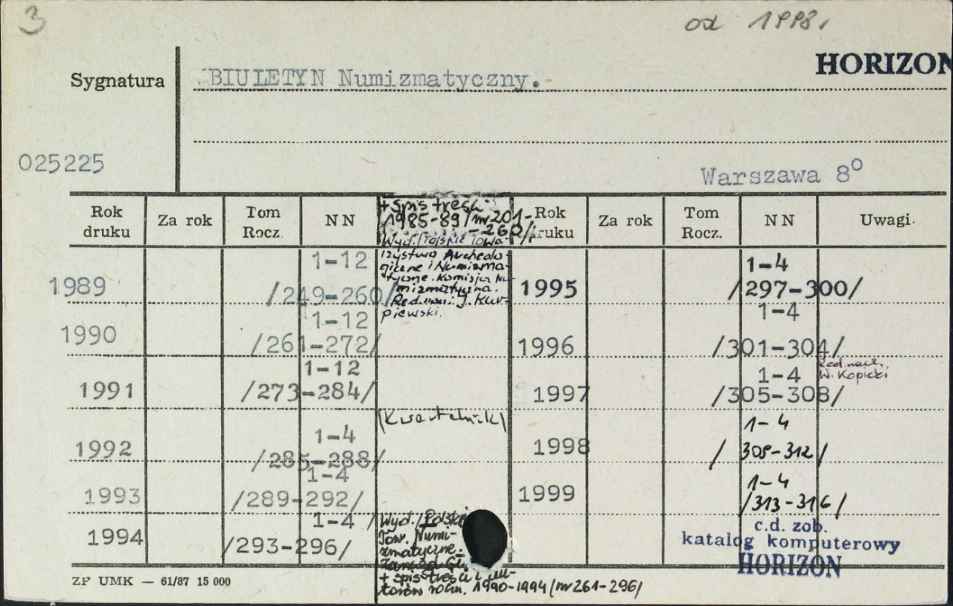 3
od 1998.
HORIZON
Sygnatura
BIULETYN Numizmatyczny.
025225
Warszawa 8°
Rok druku
Za rok
Tom Rocz.
NN
+ spis treści
1985-89/nr 201-
-260/
Wyd. Polskie Towa-
rzystwo Archeolo-
giczne i Numizma-
tyczne. Komisja Nu-
mizmatyczna.
Red. nacz. J. Kur-
piewski.
Rok druku
Za rok
Tom Rocz.
NN
Uwagi
1989
1-12
/249-260/
1990
1-12
/261-272/
1991
1-12
/273-284/
(Kwartalnik)
1992
1-4
/285-288/
1993
1-4
/289-292/
1994
1-4
/293-296/
Wyd. Polskie
Tow. Numi-
zmatyczne.
+ spis treści i
torów roczn. 1990-1994/nr 261-296/
1995
1-4
/297-300/
1996
1-4
/301-304/
Red. nacz.
W. Kopicki
1997
1-4
/305-308/
1998
1-4
/309-312/
1999
1-4
/313-316/
c.d. zob.
katalog komputerowy
HORIZON
ZP UMK — 61/87 15 000